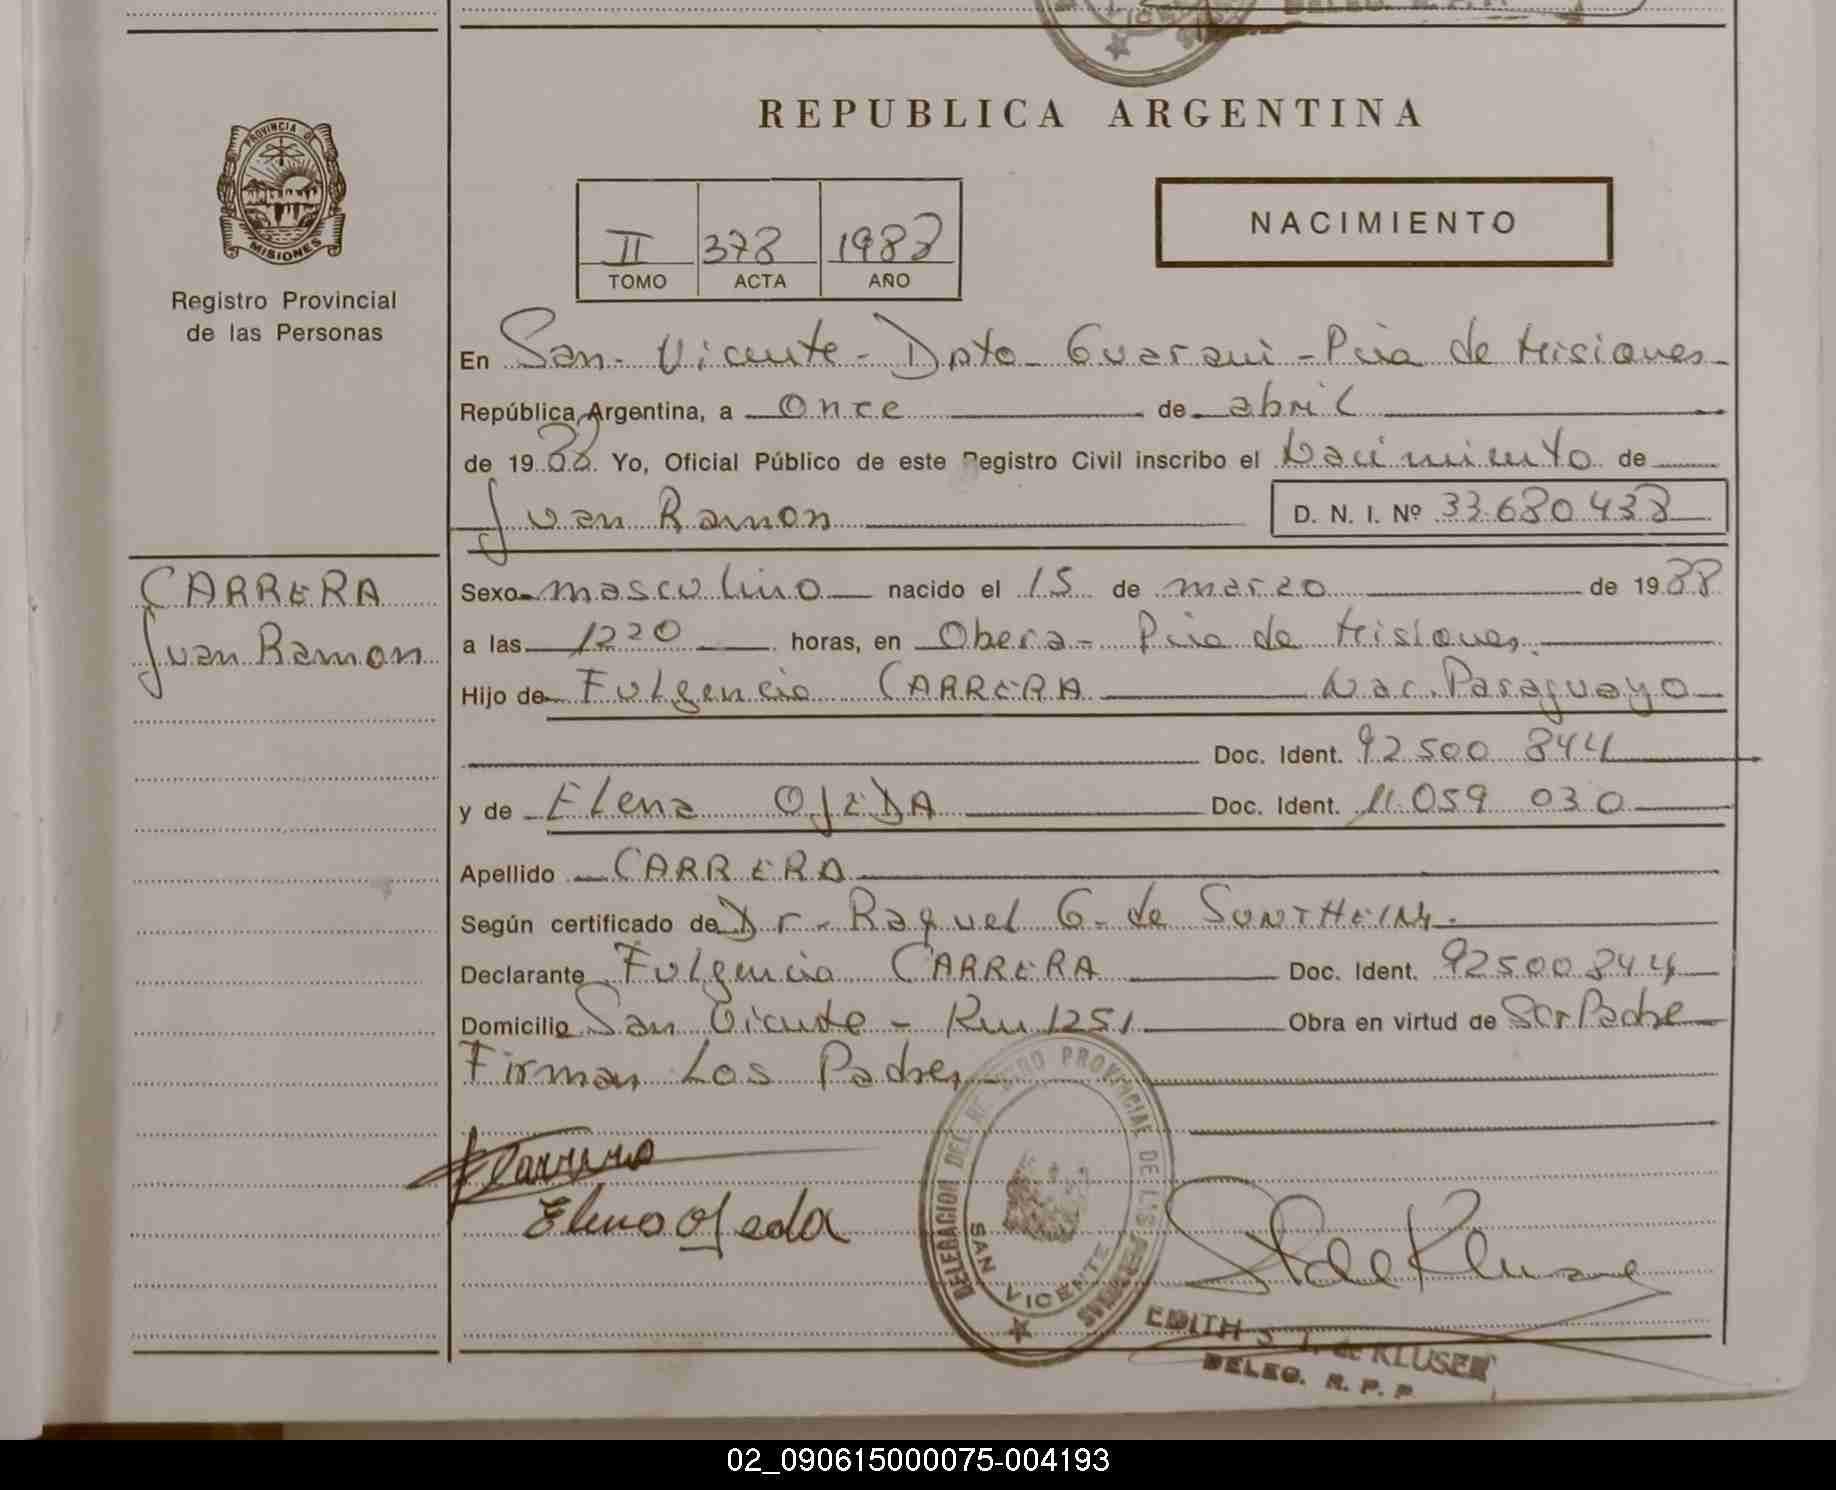 REPUBLICA ARGENTINA
PROVINCIA DE
MISIONES
Registro Provincial
de las Personas
NACIMIENTO
II 378 1988
TOMO ACTA AÑO
En San Vicente - Dpto Guarani - Pcia de Misiones
República Argentina, a once de abril
de 1988. Yo, Oficial Público de este Registro Civil inscribo el Nacimiento de
Juan Ramon D. N. I. Nº 33.680 438
CARRERA
Juan Ramon
Sexo masculino nacido el 15 de marzo de 1988
a las 1220 horas, en Obera - Pcia de Misiones,
Hijo de Fulgencio CARRERA Nac. Paraguayo
Doc. Ident. 92 500 844
y de Elena OJEDA Doc. Ident. 11.059 030
Apellido CARRERA
Según certificado de Dr. Raquel G. de SONTHEIM.
Declarante Fulgencio CARRERA Doc. Ident. 92500844
Domicilio San Vicente - Km 1251 Obra en virtud de Ser Padre
Firman Los Padres
Elena Ojeda
DELEGACION DEL REGISTRO PROVINCIAL DE LAS PERSONAS
SAN VICENTE
EDITH S. J. de KLUSEN
DELEG. R. P. P.
02_090615000075-004193